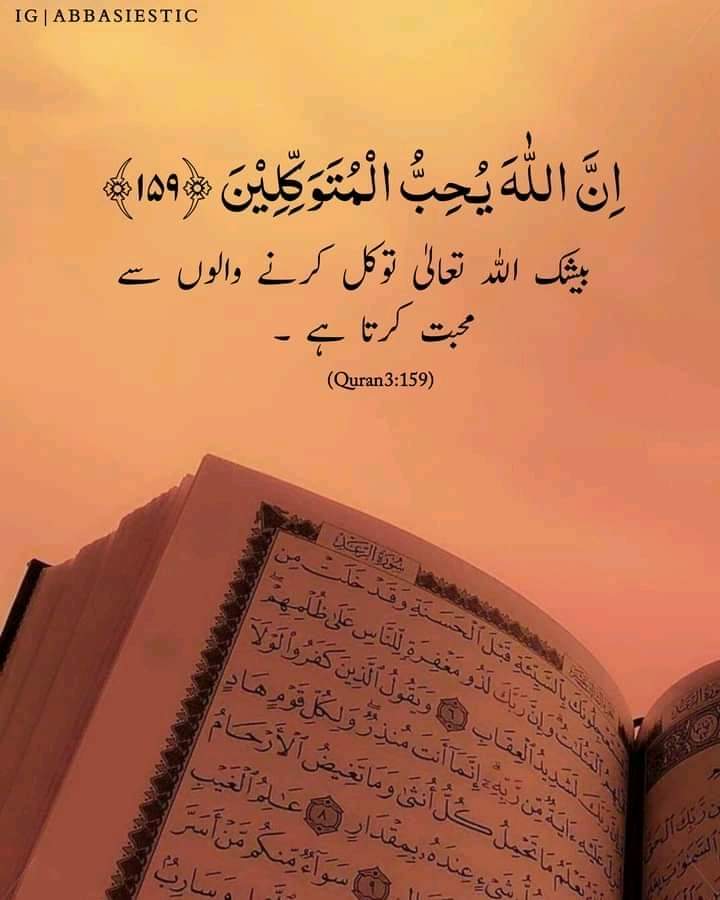 IG | ABBASIESTIC
اِنَّ اللّٰهَ يُحِبُّ الْمُتَوَكِّلِيْنَ ﴿۱۵۹﴾
بیشک اللہ تعالیٰ توکل کرنے والوں سے
محبت کرتا ہے ۔
(Quran3:159)
سُورَةُ الرَّعْدِ
بِالسَّيِّئَةِ قَبْلَ ٱلْحَسَنَةِ وَقَدْ خَلَتْ مِن
وَإِنَّ رَبَّكَ لَذُو مَغْفِرَةٍ لِّلنَّاسِ عَلَىٰ ظُلْمِهِمْ
لَشَدِيدُ ٱلْعِقَابِ ٦ وَيَقُولُ ٱلَّذِينَ كَفَرُوا۟ لَوْلَآ
عَلَيْهِ ءَايَةٌ مِّن رَّبِّهِۦٓ إِنَّمَآ أَنتَ مُنذِرٌ وَلِكُلِّ قَوْمٍ هَادٍ
يَعْلَمُ مَا تَحْمِلُ كُلُّ أُنثَىٰ وَمَا تَغِيضُ ٱلْأَرْحَامُ
شَىْءٍ عِندَهُۥ بِمِقْدَارٍ ٨ عَـٰلِمُ ٱلْغَيْبِ
٩ سَوَآءٌ مِّنكُم مَّنْ أَسَرَّ
وَسَارِبٌ